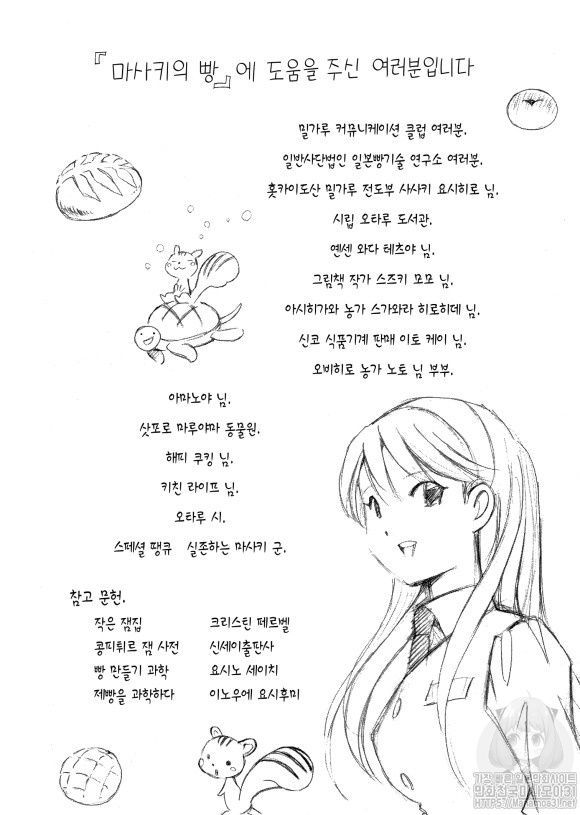 『마사키의 빵』에 도움을 주신 여러분입니다
밀가루 커뮤니케이션 클럽 여러분.
일반사단법인 일본빵기술 연구소 여러분.
홋카이도산 밀가루 전도부 사사키 요시히로 님.
시립 오타루 도서관.
옌센 와다 테츠야 님.
그림책 작가 스즈키 모모 님.
아시히가와 농가 스가와라 히로히데 님.
신코 식품기계 판매 이토 케이 님.
오비히로 농가 노토 님 부부.
아마노야 님.
삿포로 마루야마 동물원.
해피 쿠킹 님.
키친 라이프 님.
오타루 시.
스페셜 땡큐 실존하는 마사키 군.
참고 문헌.
작은 잼집 크리스틴 페르벨
콩피튀르 잼 사전 신세이출판사
빵 만들기 과학 요시노 세이치
제빵을 과학하다 이노우에 요시후미
가장 빠른 일본만화사이트
만화천국 마나모아31
HTTPS://Manamoa31.net